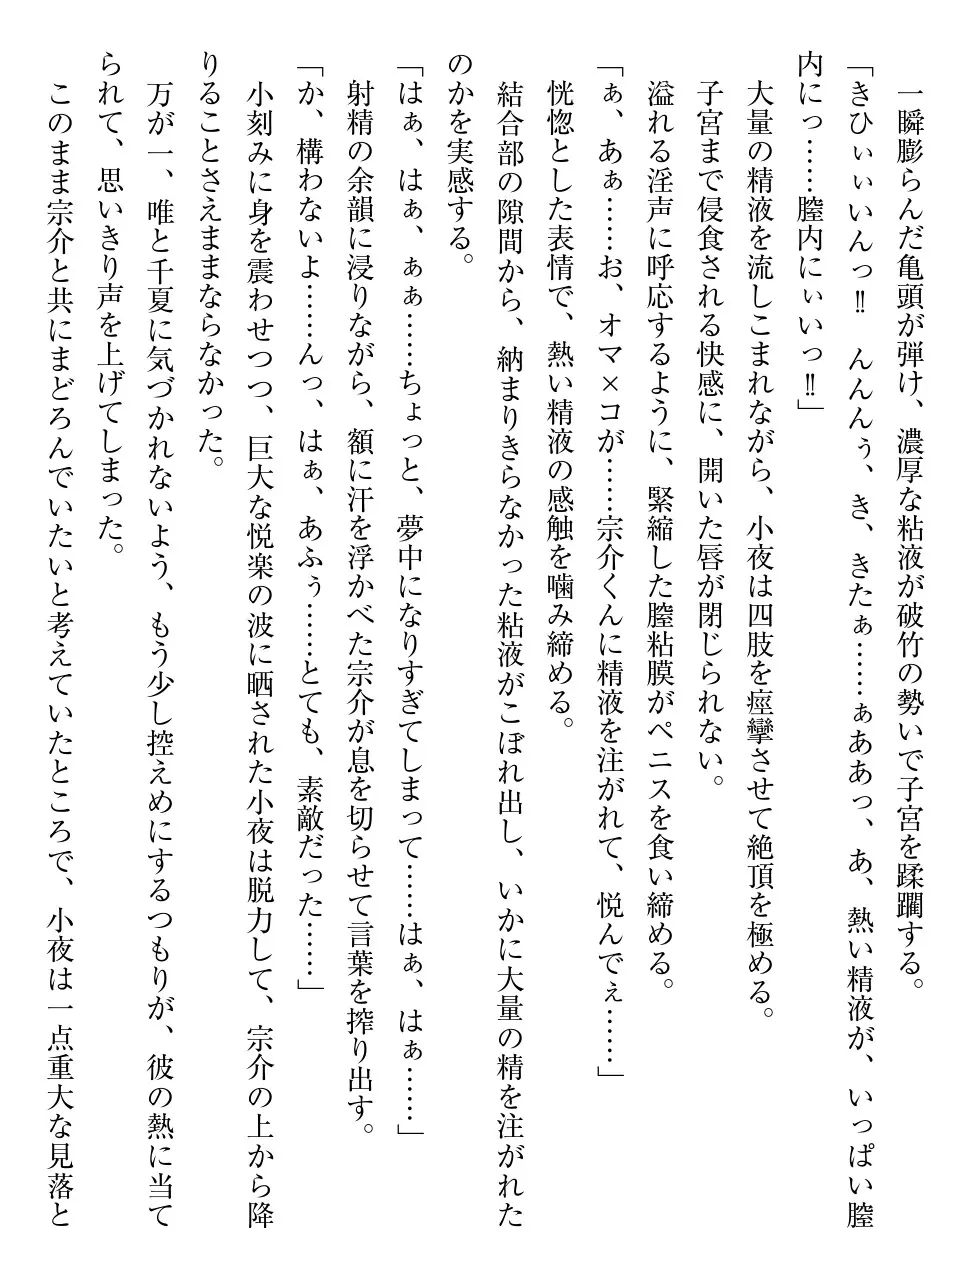 一瞬膨らんだ亀頭が弾け、濃厚な粘液が破竹の勢いで子宮を蹂躙する。
「きひぃぃいんっ‼　んんんぅ、き、きたぁ……ぁああっ、あ、熱い精液が、いっぱい膣
内にっ……膣内にぃいっ‼」
大量の精液を流しこまれながら、小夜は四肢を痙攣させて絶頂を極める。
子宮まで侵食される快感に、開いた唇が閉じられない。
溢れる淫声に呼応するように、緊縮した膣粘膜がペニスを食い締める。
「ぁ、あぁ……お、オマ×コが……宗介くんに精液を注がれて、悦んでぇ……」
恍惚とした表情で、熱い精液の感触を噛み締める。
結合部の隙間から、納まりきらなかった粘液がこぼれ出し、いかに大量の精を注がれた
のかを実感する。
「はぁ、はぁ、ぁぁ……ちょっと、夢中になりすぎてしまって……はぁ、はぁ……」
射精の余韻に浸りながら、額に汗を浮かべた宗介が息を切らせて言葉を搾り出す。
「か、構わないよ……んっ、はぁ、あふぅ……とても、素敵だった……」
小刻みに身を震わせつつ、巨大な悦楽の波に晒された小夜は脱力して、宗介の上から降
りることさえままならなかった。
万が一、唯と千夏に気づかれないよう、もう少し控えめにするつもりが、彼の熱に当て
られて、思いきり声を上げてしまった。
このまま宗介と共にまどろんでいたいと考えていたところで、小夜は一点重大な見落と